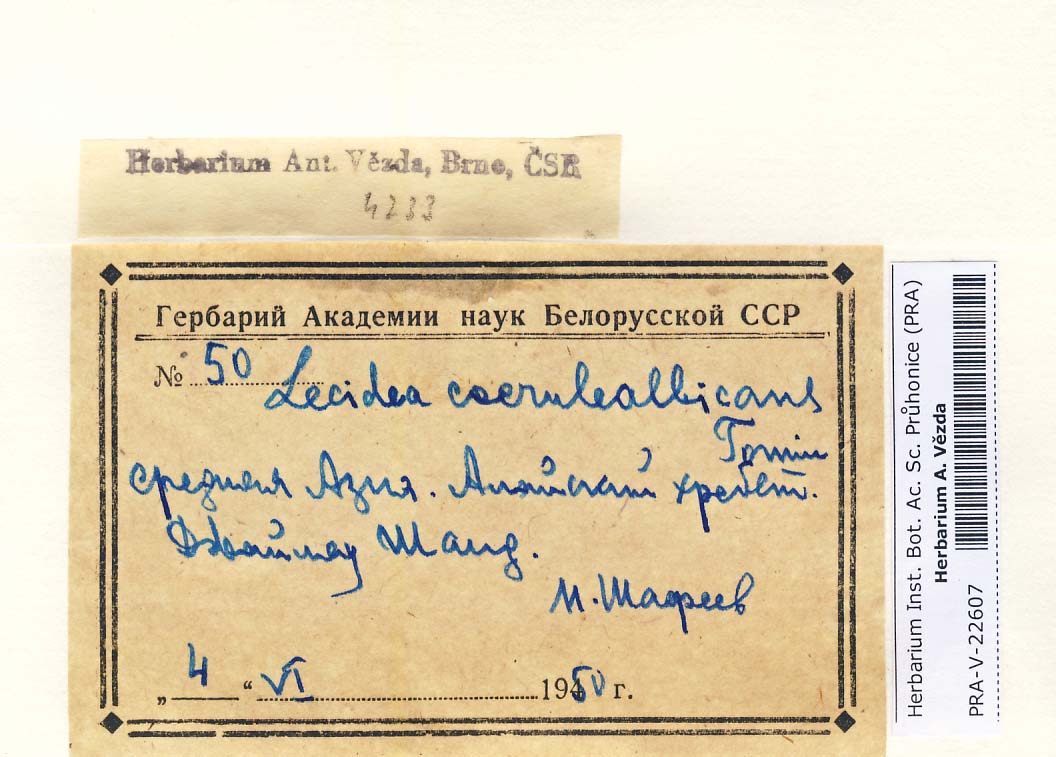 Herbarium Ant. Vězda, Brno, ČSR
4233
Гербарий Академии наук Белорусской ССР
№ 50 Lecidea coeruleoalbicans
Tomin
средняя Азия. Алайский хребет.
Джаймау Шанд.
М. Шафеев
„ 4 “ VI 1950 г.
Herbarium Inst. Bot. Ac. Sc. Průhonice (PRA)
Herbarium A. Vězda
PRA-V-22607